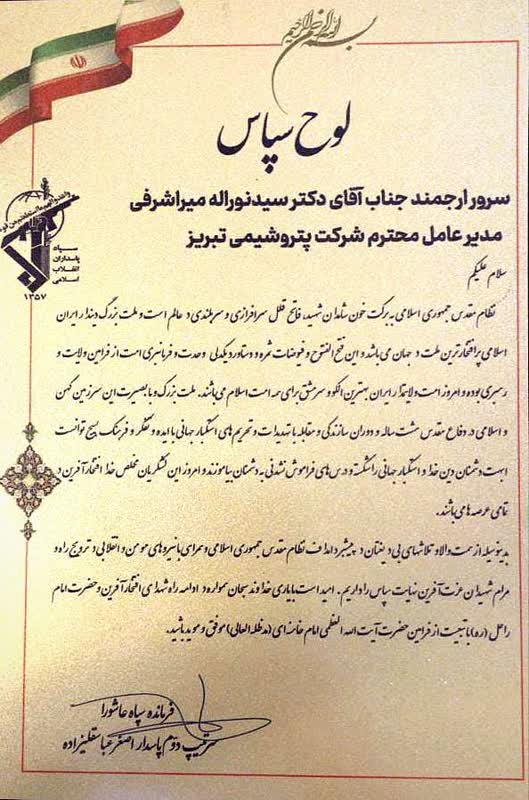 بسم الله الرحمن الرحیم
لوح سپاس
سرور ارجمند جناب آقای دکتر سیدنوراله میراشرفی
مدیر عامل محترم شرکت پتروشیمی تبریز
سپاه
پاسداران
انقلاب
اسلامی
۱۳۵۷
سلام علیکم
نظام مقدس جمهوری اسلامی به برکت خون شاهدان شهید، فاتح قلل سرافرازی و سربلندی در عالم است و ملت بزرگ دیندار ایران
اسلامی پرافتخارترین ملت در جهان می باشد و این فتح الفتوح و فیوضات ثمره و دستاورد یکدلی وحدت و فرمانبری امت از فرامین ولایت و
رهبری بوده و امروز امت ولایتمدار ایران بهترین الگو و سرمشق برای همه امت اسلام می باشند. ملت بزرگ و با بصیرت این سرزمین کهن
و اسلامی در دفاع مقدس هشت ساله و دوران سازندگی و مقابله با تهدیدات و تحریم های استکبار جهانی با ایده و تفکر و فرهنگ بسیج توانست
ابهت دشمنان دین خدا و استکبار جهانی را شکسته و درس های فراموش نشدنی به دشمنان بیاموزند و امروز این لشکریان مخلص خدا افتخار آفرین در
تمامی عرصه ها می باشند.
بدینوسیله از همت والا و تلاشهای بی دریغتان در پیشبرد اهداف نظام مقدس جمهوری اسلامی و همراهی با نیروهای مومن و انقلابی در ترویج راه و
مرام شهیدان عزت آفرین نهایت سپاس را داریم. امید است با یاری خداوند سبحان همواره در ادامه راه شهدای افتخار آفرین و حضرت امام
راحل (ره) با تبعیت از فرامین حضرت آیت الله العظمی امام خامنه ای (مدظله العالی) موفق و موید باشید.
فرمانده سپاه عاشورا
سرتیپ دوم پاسدار اصغر عباسقلیزاده